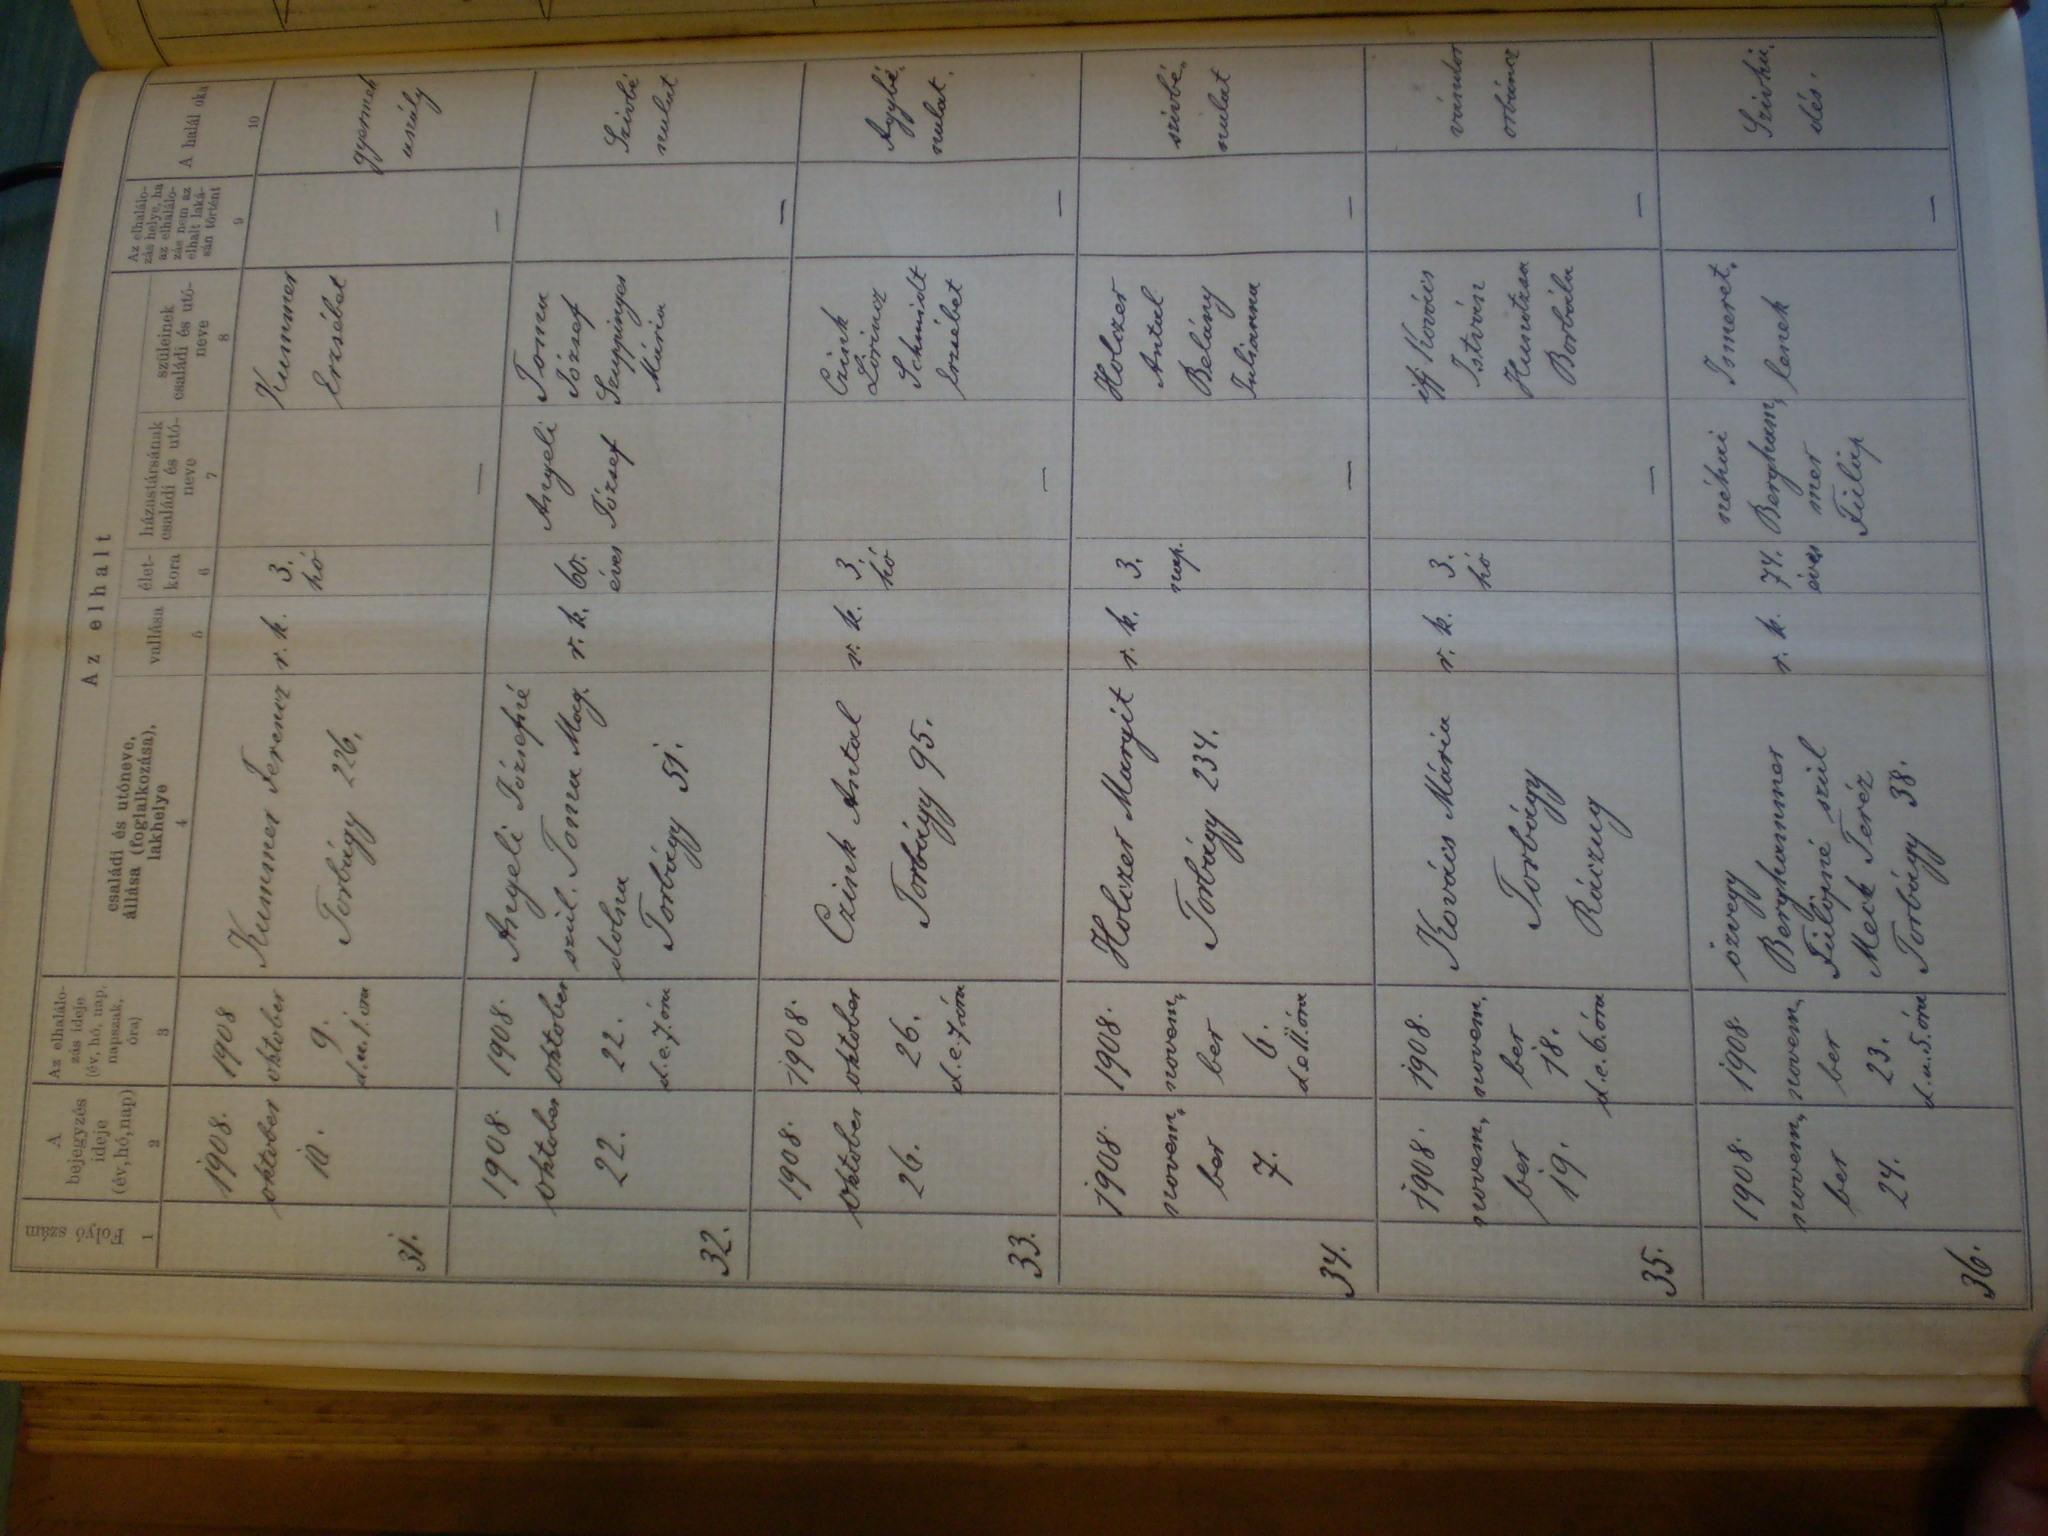 Az elhalt
Folyó szám
A
bejegyzés
ideje
(év, hó, nap)
Az elhalálo-
zás ideje
(év, hó, nap,
napszak,
óra)
családi és utóneve,
állása (foglalkozása),
lakhelye
vallása
élet-
kora
házastársának
családi és utó-
neve
szüleinek
családi és utó-
neve
Az elhalálo-
zás helye, ha
az elhalálo-
zás nem az
elhalt laká-
sán történt
A halál oka
1
2
3
4
5
6
7
8
9
10
31.
1908.
oktober
10.
1908
oktober
9.
d.u.1.óra
Kummer Ferencz
Torbágy 226.
r. k.
3.
hó
—
Kummer
Erzsébet
—
gyermek
aszály
32.
1908.
oktober
22.
1908.
oktober
22.
d.e.7.óra
Angeli Józsefné
szül. Toma Mag.
dolna
Torbágy 51.
r. k.
60.
éves
Angeli
József
Toma
József
Mária
—
Szivbé
nulat
33.
1908.
oktober
26.
1908.
oktober
26.
d.e.7.óra
Czink Antal
Torbágy 95.
r. k.
3.
hó
—
Czink
Lőrincz
Schmidt
Erzsébet
—
Agybé,
nulat.
34.
1908.
novem,
ber
7.
1908.
novem,
ber
6.
d.e.11.óra
Holczer Margit
Torbágy 234.
r. k.
3.
nap.
—
Holczer
Antal
Belány
Julianna
—
szivbé,
nulat
35.
1908.
novem,
ber
19.
1908.
novem,
ber
18.
d.e.6.óra
Kovács Mária
Torbágy
Ráczug
r. k.
3.
hó
—
ifj Kovács
István
Borbála
—
vándor
orbáncz
36.
1908.
novem,
ber
24.
1908.
novem,
ber
23.
d.u.5.óra
özvegy
Berghammer
Fülöpné szül
Méck Teréz
Torbágy 38.
r. k.
74.
éves
néhai
Bergham,
mer
Fülöp
Ismeret,
lenek
—
Szivhü,
dés.